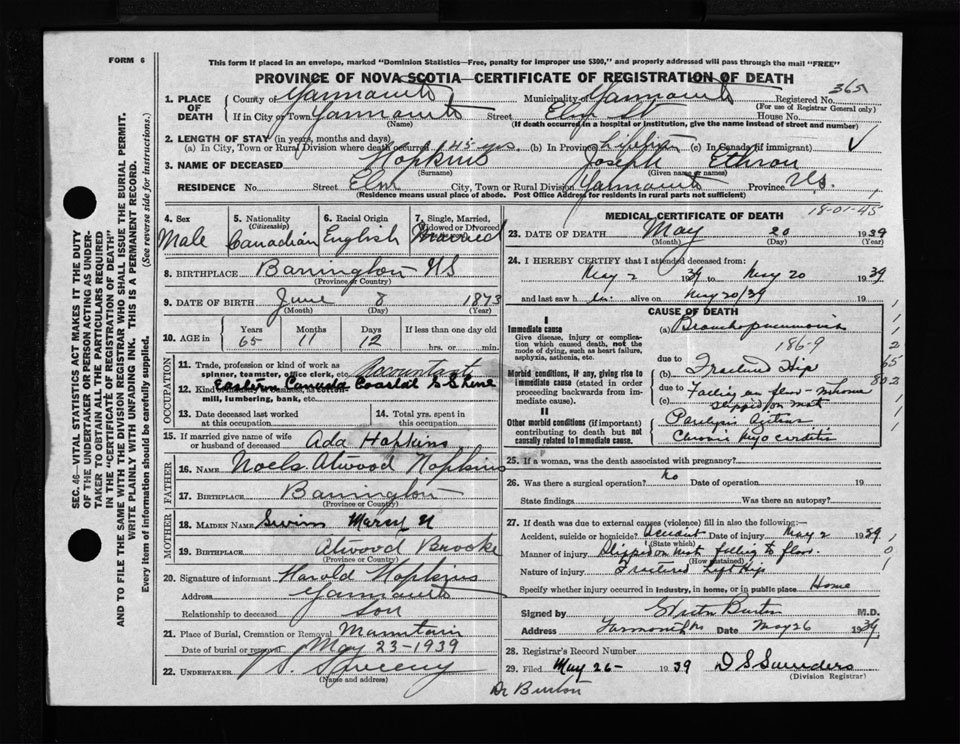 FORM 6
This form if placed in an envelope, marked "Dominion Statistics—Free, penalty for improper use $300," and properly addressed will pass through the mail "FREE"
PROVINCE OF NOVA SCOTIA—CERTIFICATE OF REGISTRATION OF DEATH
SEC. 46—VITAL STATISTICS ACT MAKES IT THE DUTY
OF THE UNDERTAKER OR PERSON ACTING AS UNDER-
TAKER TO OBTAIN ALL THE PARTICULARS REQUIRED
IN THE "CERTIFICATE OF REGISTRATION OF DEATH"
AND TO FILE THE SAME WITH THE DIVISION REGISTRAR WHO SHALL ISSUE THE BURIAL PERMIT.
WRITE PLAINLY WITH UNFADING INK. THIS IS A PERMANENT RECORD.
Every item of information should be carefully supplied. (See reverse side for instructions.)
1. PLACE OF DEATH County of Yarmouth Municipality of Yarmouth Registered No. 365
(For use of Registrar General only)
If in City or Town Yarmouth Street Elm St House No.
(Name) (If death occurred in a hospital or institution, give the name instead of street and number)
2. LENGTH OF STAY (in years, months and days)
(a) In City, Town or Rural Division where death occurred 45 yrs. (b) In Province Lifetime (c) In Canada (if immigrant)
3. NAME OF DECEASED Hopkins Joseph Ethron
(Surname) (Given name or names)
RESIDENCE No. Street Elm City, Town or Rural Division Yarmouth Province N.S.
(Residence means usual place of abode. Post Office Address for residents in rural parts not sufficient)
18-01-45
4. Sex Male
5. Nationality (Citizenship) Canadian
6. Racial Origin English
7. Single, Married, Widowed or Divorced Married
8. BIRTHPLACE Barrington NS
(Province or Country)
9. DATE OF BIRTH June 8 1873
(Month) (Day) (Year)
10. AGE in Years 65 Months 11 Days 12 If less than one day old
hrs. or min.
OCCUPATION
11. Trade, profession or kind of work as Accountant
spinner, teamster, office clerk, etc.
12. Kind of
Eastern Canada Coastal S S Line
mill, lumbering, bank, etc.
13. Date deceased last worked at this occupation
14. Total yrs. spent in this occupation
15. If married give name of wife or husband of deceased Ada Hopkins
FATHER
16. NAME Atwood Hopkins
17. BIRTHPLACE Barrington
(Province or Country)
MOTHER
18. MAIDEN NAME Swim Marcy N
19. BIRTHPLACE Atwood Brooke
(Province or Country)
20. Signature of informant Harold Hopkins
Address Yarmouth
Relationship to deceased Son
21. Place of Burial, Cremation or Removal Mountain
Date of burial or removal May 23-1939
22. UNDERTAKER Sweeny
(Name and address)
MEDICAL CERTIFICATE OF DEATH
23. DATE OF DEATH May 20 1939
(Month) (Day) (Year)
24. I HEREBY CERTIFY that I attended deceased from:
May 2 1939 to May 20 1939
and last saw h im alive on May 20/39 19
CAUSE OF DEATH
I
Immediate cause
Give disease, injury or complication which caused death, not the mode of dying, such as heart failure, asphyxia, asthenia, etc.
(a) Bronchopneumonia
186-9
due to
Morbid conditions, if any, giving rise to immediate cause (stated in order proceeding backwards from immediate cause).
(b) Fractured Hip
due to
(c) Falling on floor - in home
slipped on mat
II
Other morbid conditions (if important) contributing to death but not causally related to immediate cause.
Paralysis Agitans
Chronic Myocarditis
25. If a woman, was the death associated with pregnancy?
26. Was there a surgical operation? No Date of operation 19
State findings Was there an autopsy?
27. If death was due to external causes (violence) fill in also the following:—
Accident, suicide or homicide? Accident Date of injury May 2 1939
(State which)
Manner of injury Slipped on mat falling to floor.
(How sustained)
Nature of injury Fractured Left Hip
Specify whether injury occurred in industry, in home, or in public place Home
Signed by Burton M.D.
Address Yarmouth NS Date May 26 1939
28. Registrar's Record Number
29. Filed May 26- 1939 D S Saunders
(Division Registrar)
Dr Burton